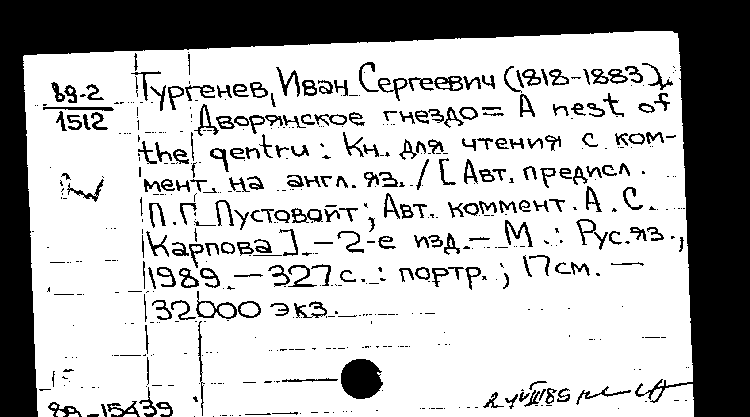 89-2
1512
Тургенев, Иван Сергеевич (1818-1883).
Дворянское гнездо = A nest of
the gentru : Кн. для чтения с ком-
мент. на англ. яз. / [Авт. предисл.
П.Г. Пустовойт; Авт. коммент. А.С.
Карпова]. - 2-е изд. - М. : Рус. яз.,
1989. - 327 с. : портр. ; 17 см. -
32000 экз.
89-15439